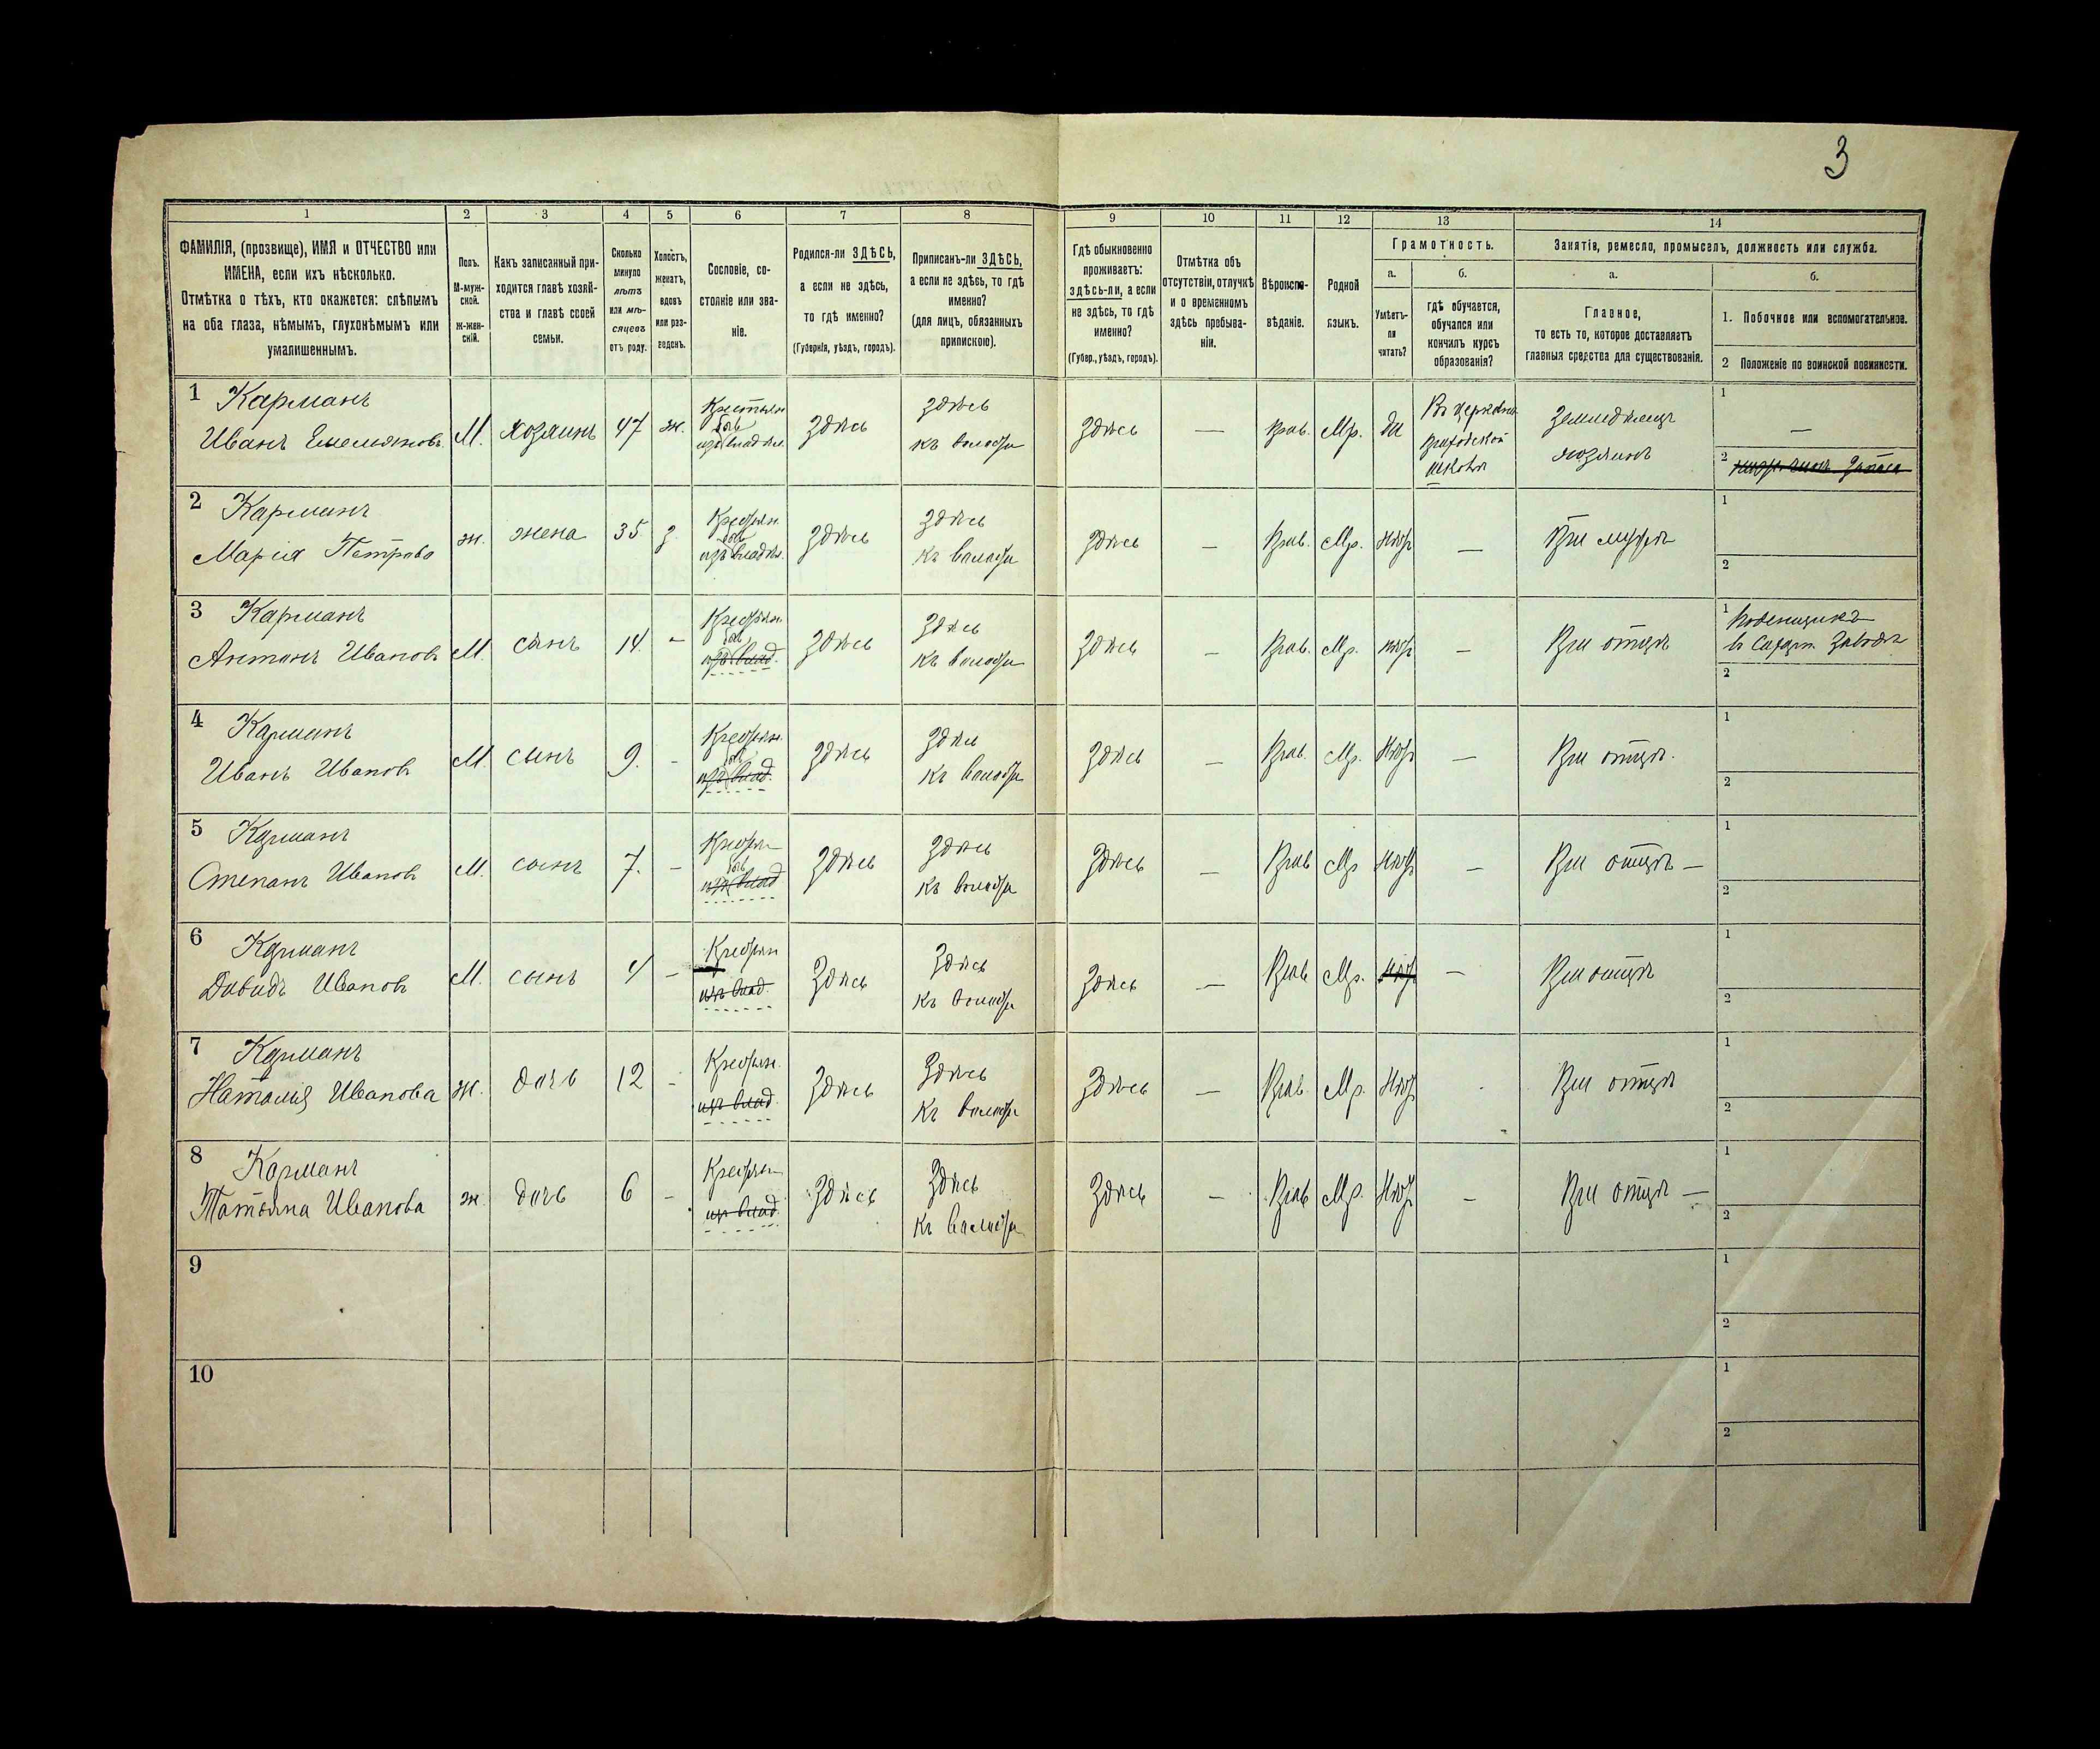 3
1
2
3
4
5
6
7
8
9
10
11
12
13
14
ФАМИЛІЯ, (прозвище), ИМЯ и ОТЧЕСТВО или
ИМЕНА, если ихъ нѣсколько.
Отмѣтка о тѣхъ, кто окажется: слѣпымъ
на оба глаза, нѣмымъ, глухонѣмымъ или
умалишеннымъ.
Полъ.
М-муж-
ской.
ж-жен-
скій.
Какъ записанный при-
ходится главѣ хозяй-
ства и главѣ своей
семьи.
Сколько
минуло
лѣтъ
или мѣ-
сяцевъ
отъ роду.
Холостъ,
женатъ,
вдовъ
или раз-
веденъ.
Сословіе, со-
стояніе или зва-
ніе.
Родился-ли ЗДѢСЬ,
а если не здѣсь,
то гдѣ именно?
(Губернія, уѣздъ, городъ).
Приписанъ-ли ЗДѢСЬ,
а если не здѣсь, то гдѣ
именно?
(для лицъ, обязанныхъ
припискою).
Гдѣ обыкновенно
проживаетъ:
здѣсь-ли, а если
не здѣсь, то гдѣ
именно?
(Губер., уѣздъ, городъ).
Отмѣтка объ
отсутствіи, отлучкѣ
и о временномъ
здѣсь пребыва-
ніи.
Вѣроиспо-
вѣданіе.
Родной
языкъ.
Грамотность.
а.
Умѣетъ-
ли
читать?
б.
гдѣ обучается,
обучался или
кончилъ курсъ
образованія?
Занятіе, ремесло, промыселъ, должность или служба.
а.
Главное,
то есть то, которое доставляетъ
главныя средства для существованія.
б.
1. Побочное или вспомогательное.
2 Положеніе по воинской повинности.
1 Карманъ
Иванъ Емельяновъ
М.
хозяинъ
47
ж.
Крестьян
изъ владѣл.
здѣсь
здѣсь
къ волости
здѣсь
—
Прав.
Мр.
да
Въ церковно
приходской
школѣ
Земледѣлецъ
хозяинъ
1
—
2
2 Карманъ
Марія Петрова
ж.
жена
35
з.
Крестьян.
изъ владѣл.
здѣсь
здѣсь
къ волости
здѣсь
—
Прав.
Мр.
нѣт
—
При мужѣ
1
2
3 Карманъ
Антонъ Ивановъ
М.
сынъ
14.
-
Крестьян.
изъ влад.
здѣсь
здѣсь
къ волости
здѣсь
—
Прав.
Мр.
нѣт
—
При отцѣ
1 Поденщикъ
в Сахарн. Заводѣ
2
4 Карманъ
Иванъ Ивановъ
М
сынъ
9.
-
Крестьян.
изъ влад.
здѣсь
здѣсь
къ волости
здѣсь
—
Прав.
Мр.
Нѣт
—
При отцѣ.
1
2
5 Карманъ
Степанъ Ивановъ
М.
сынъ
7.
—
Крестьян
изъ влад
здѣсь
здѣсь
къ волости
здѣсь
—
Прав
Мр
Нѣт
—
При отцѣ —
1
2
6 Карманъ
Давидъ Ивановъ
М.
сынъ
4
—
Крестьян
изъ влад.
Здѣсь
Здѣсь
къ волости
Здѣсь
—
Прав
Мр.
нѣт
—
При отцѣ
1
2
7 Карманъ
Наталия Иванова
ж.
дочь
12
-
Крестьян.
изъ влад.
Здѣсь
Здѣсь
Къ волости
Здѣсь
—
Прав.
Мр.
Нѣт
-
При отцѣ
1
2
8 Карманъ
Татьяна Иванова
ж.
дочь
6
-
Крестьян
изъ влад.
Здѣсь
Здѣсь
Къ волости
Здѣсь
—
Прав
Мр.
Нѣт
—
При отцѣ —
1
2
9
1
2
10
1
2